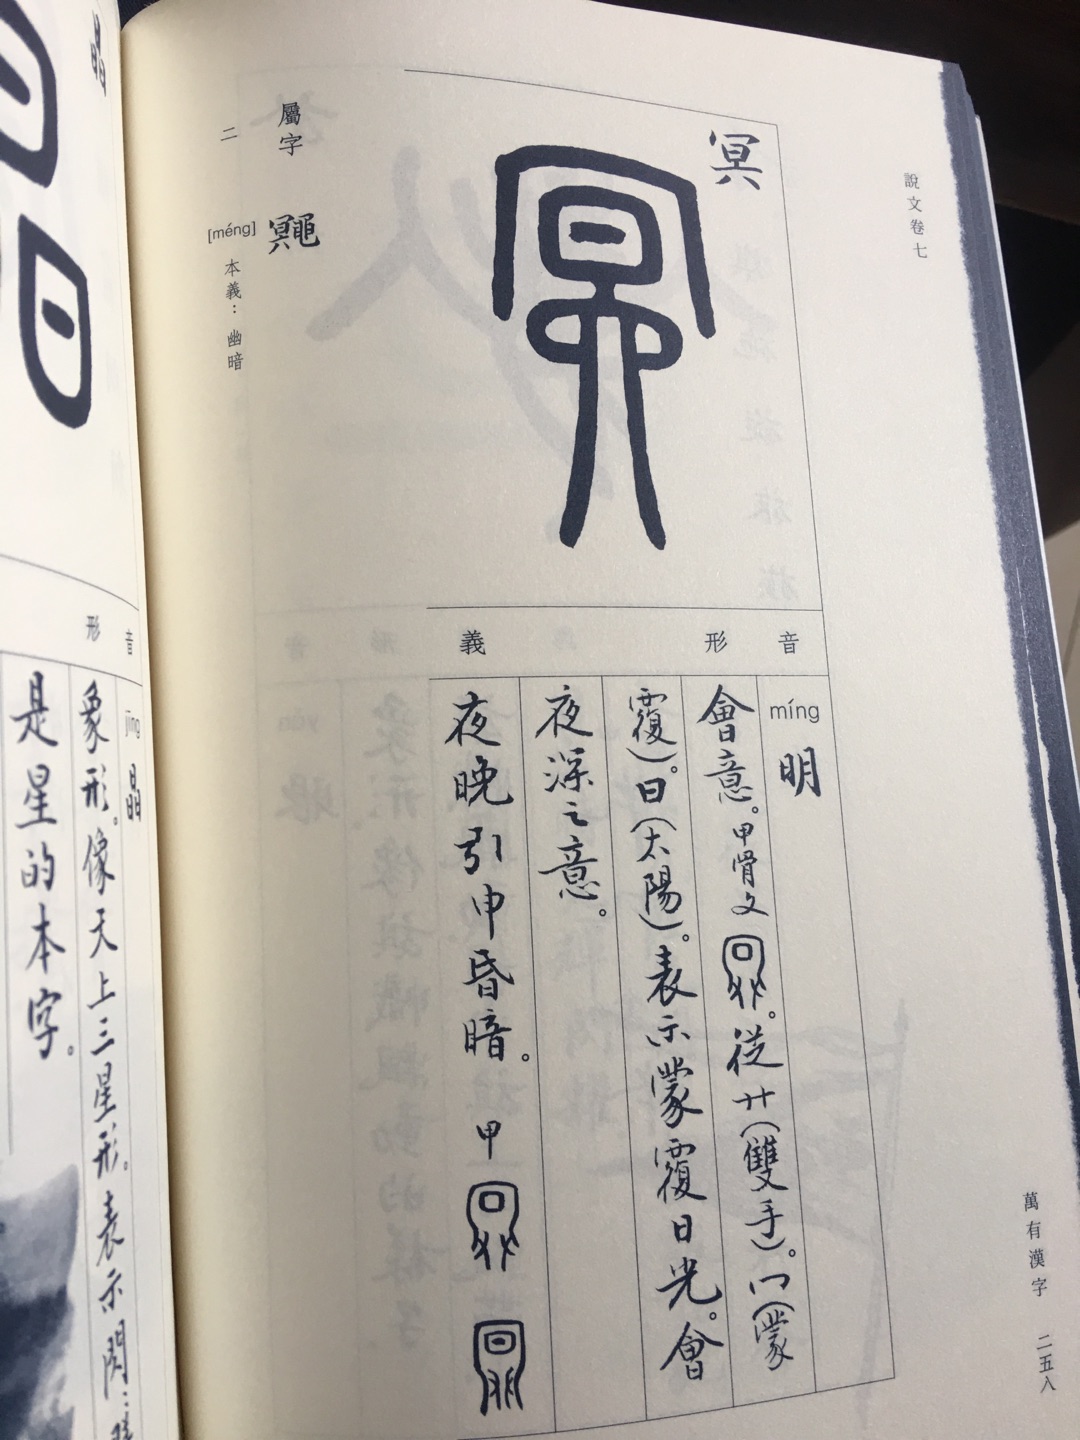 說文卷七
冥
屬字
二
鼆
[méng]
本義：幽暗
音
形
義
míng
明
會意。甲骨文。從廾（雙手）。冖（蒙
覆）。日（太陽）。表示蒙覆日光。會
夜深之意。
夜晚引申昏暗。甲
萬有漢字
二五八
晶
音
形
jīng
晶
象形。像天上三星形。表示閃
是星的本字。